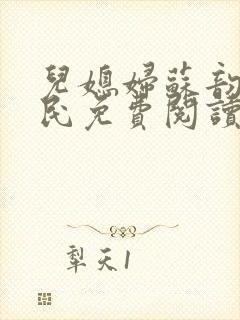 兒媳婦蘇韵
民免費閱讀
犁天1